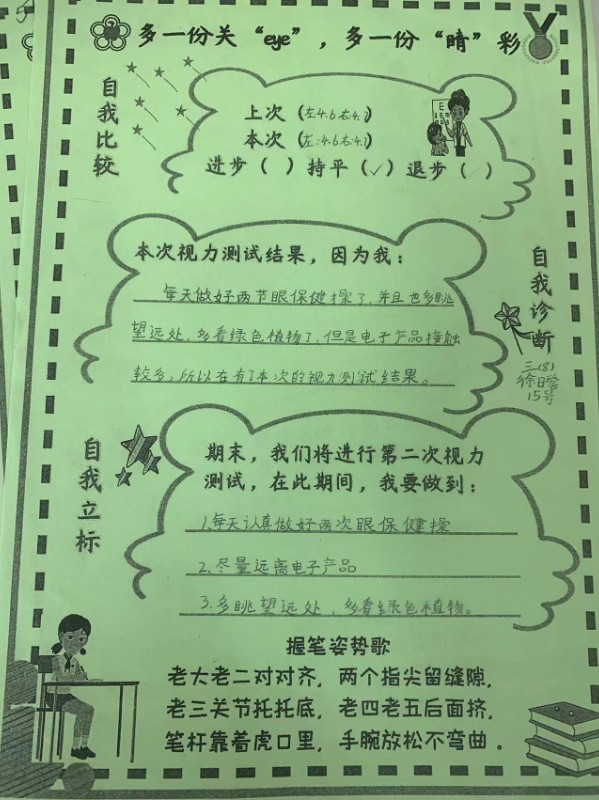 多一份关“eye”，多一份“睛”彩
自我比较
上次（左4.6右4.）
本次（左:4.6右4.）
进步（ ）持平（✓）退步（ ）
本次视力测试结果，因为我：
每天做好两节眼保健操了，并且也多眺
望远处，多看绿色植物了，但是电子产品接触
较多，所以在有了本次的视力测试结果。
自我诊断
三(8)
徐日
15号
自我立标
期末，我们将进行第二次视力
测试，在此期间，我要做到：
1.每天认真做好两次眼保健操
2.尽量远离电子产品
3.多眺望远处，多看绿色植物。
握笔姿势歌
老大老二对对齐，两个指尖留缝隙，
老三关节托托底，老四老五后面挤，
笔杆靠着虎口里，手腕放松不弯曲。